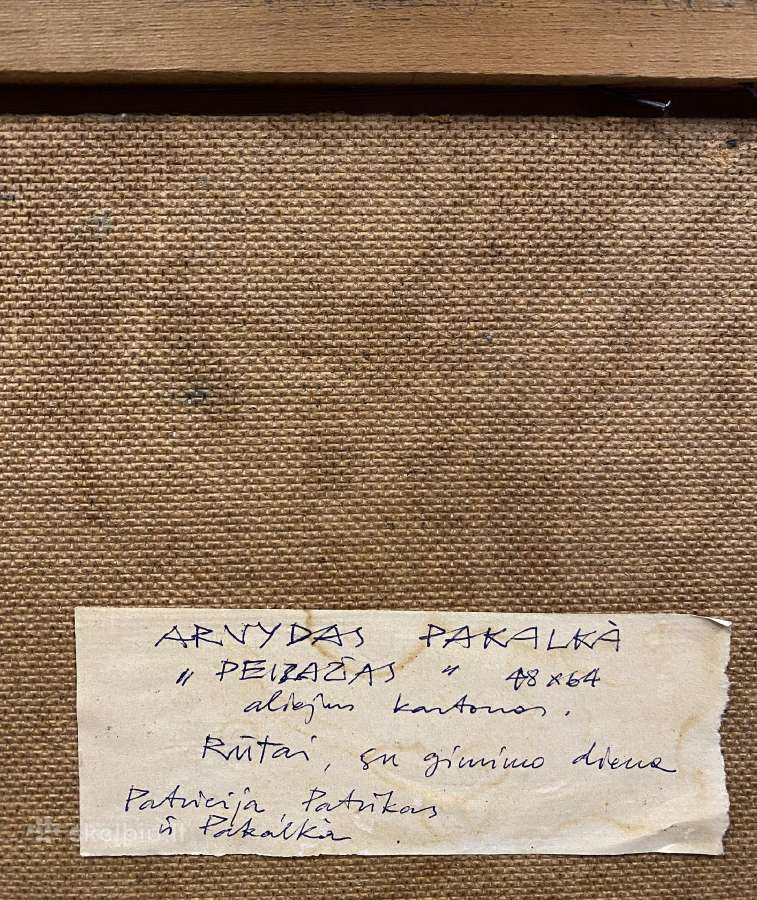 ARVYDAS PAKALKA
„ PEIZAŽAS " 48x64
aliejus kartonas.
Rūtai, su gimimo diena
Patricija, Patrikas
ir Pakalka
skelbiu.lt